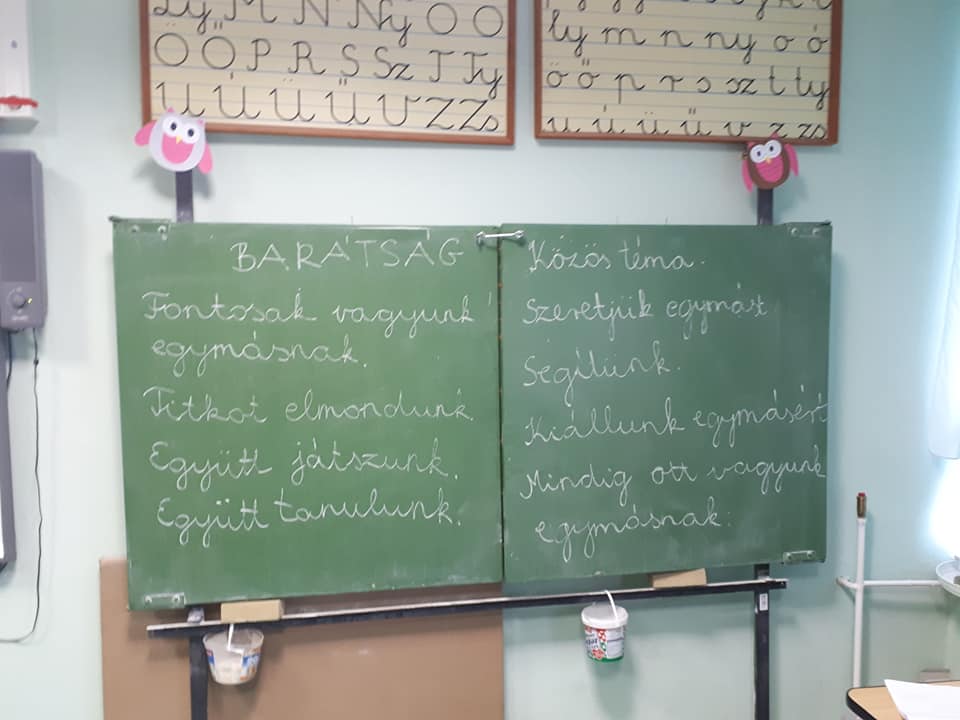 Ly M N Ny O Ó
Ö Ő P R S Sz T Ty
U Ú Ü Ű V Z Zs
ly m n ny o ó
ö ő p r s sz t ty
u ú ü ű v z zs
BARÁTSÁG
Fontosak vagyunk
egymásnak.
Titkot elmondunk.
Együtt játszunk.
Együtt tanulunk.
Közös téma.
Szeretjük egymást
Segítünk.
Kiállunk egymásért
Mindig ott vagyunk
egymásnak.